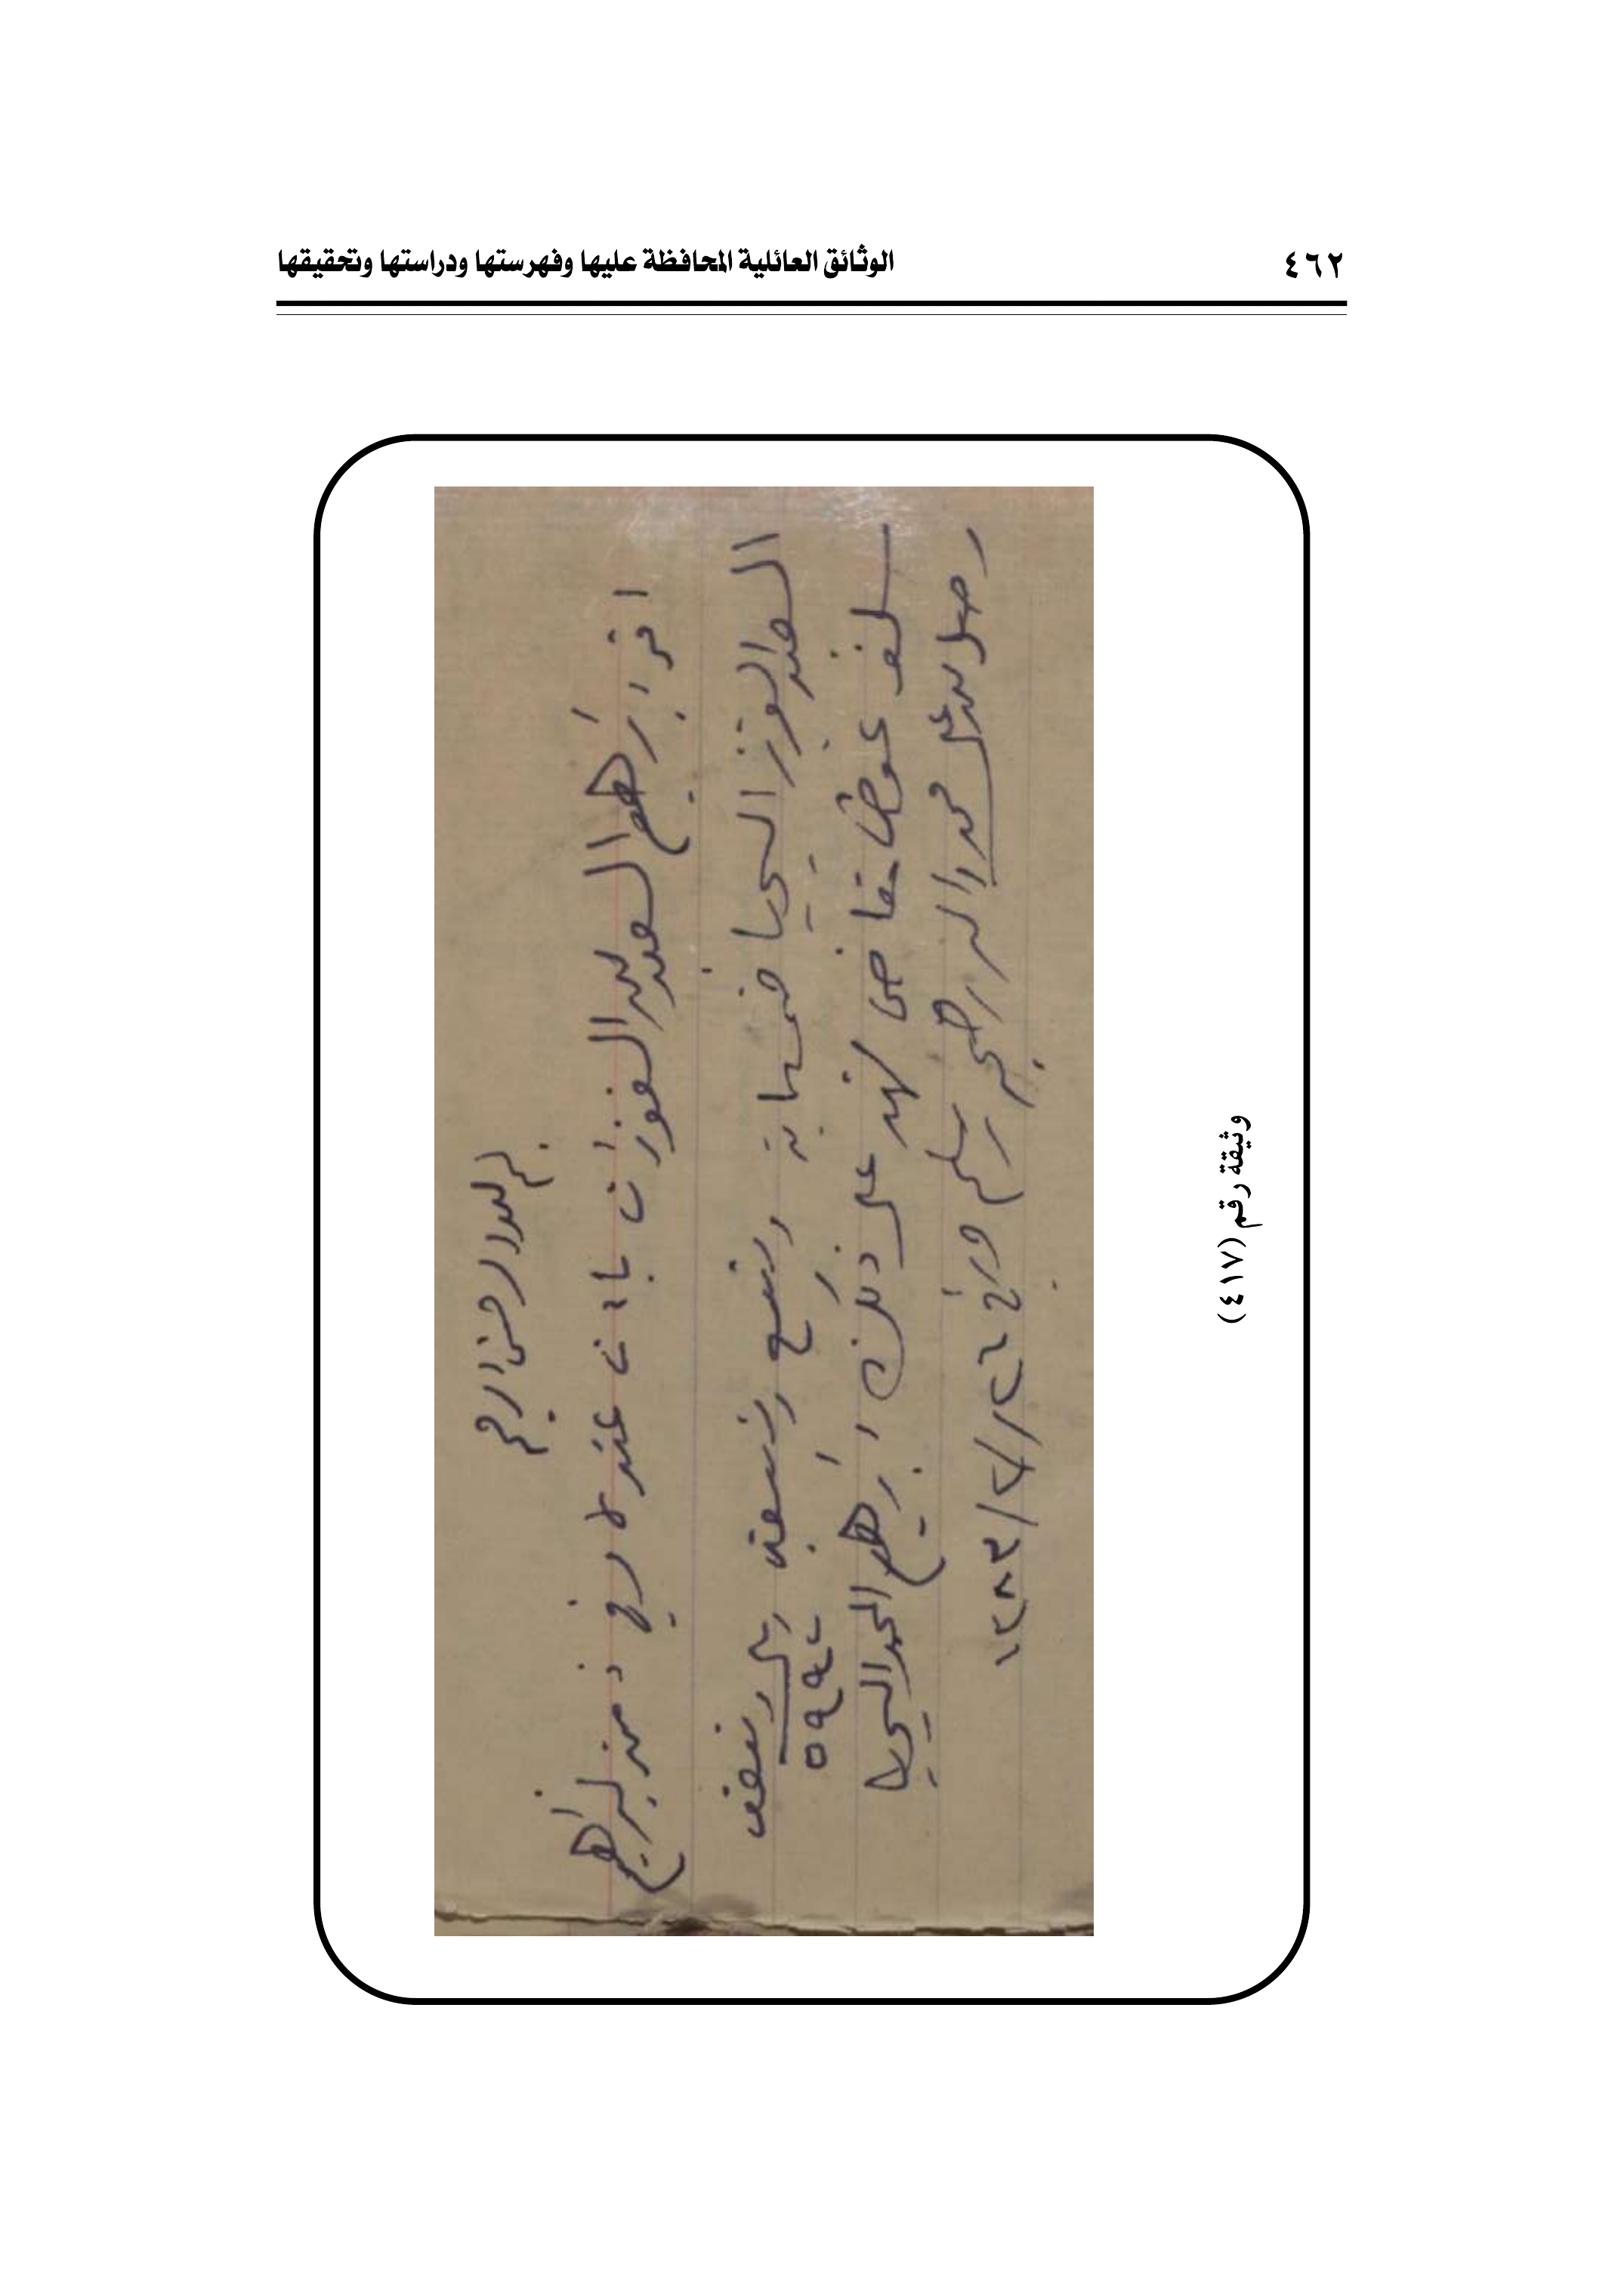 الوثائق العائلية المحافظة عليها وفهرستها ودراستها وتحقيقها ٤٦٢
بسم الله الرحمن الرحيم
اقر ابراهيم العبد الله الفوزان بان عنده وفي ذمته لبراهيم
العبد العزيز اليحيا خمسماية وتسع وتسعين ريال ونصف
٥٩٩
سلف عوض قاضي شهد على ذلك ابراهيم الحمد اليحيا
وصلى الله على محمد واله وصحبه وسلم ٢٦/٢/١٣٨٣
وثيقة رقم (٤١٧)